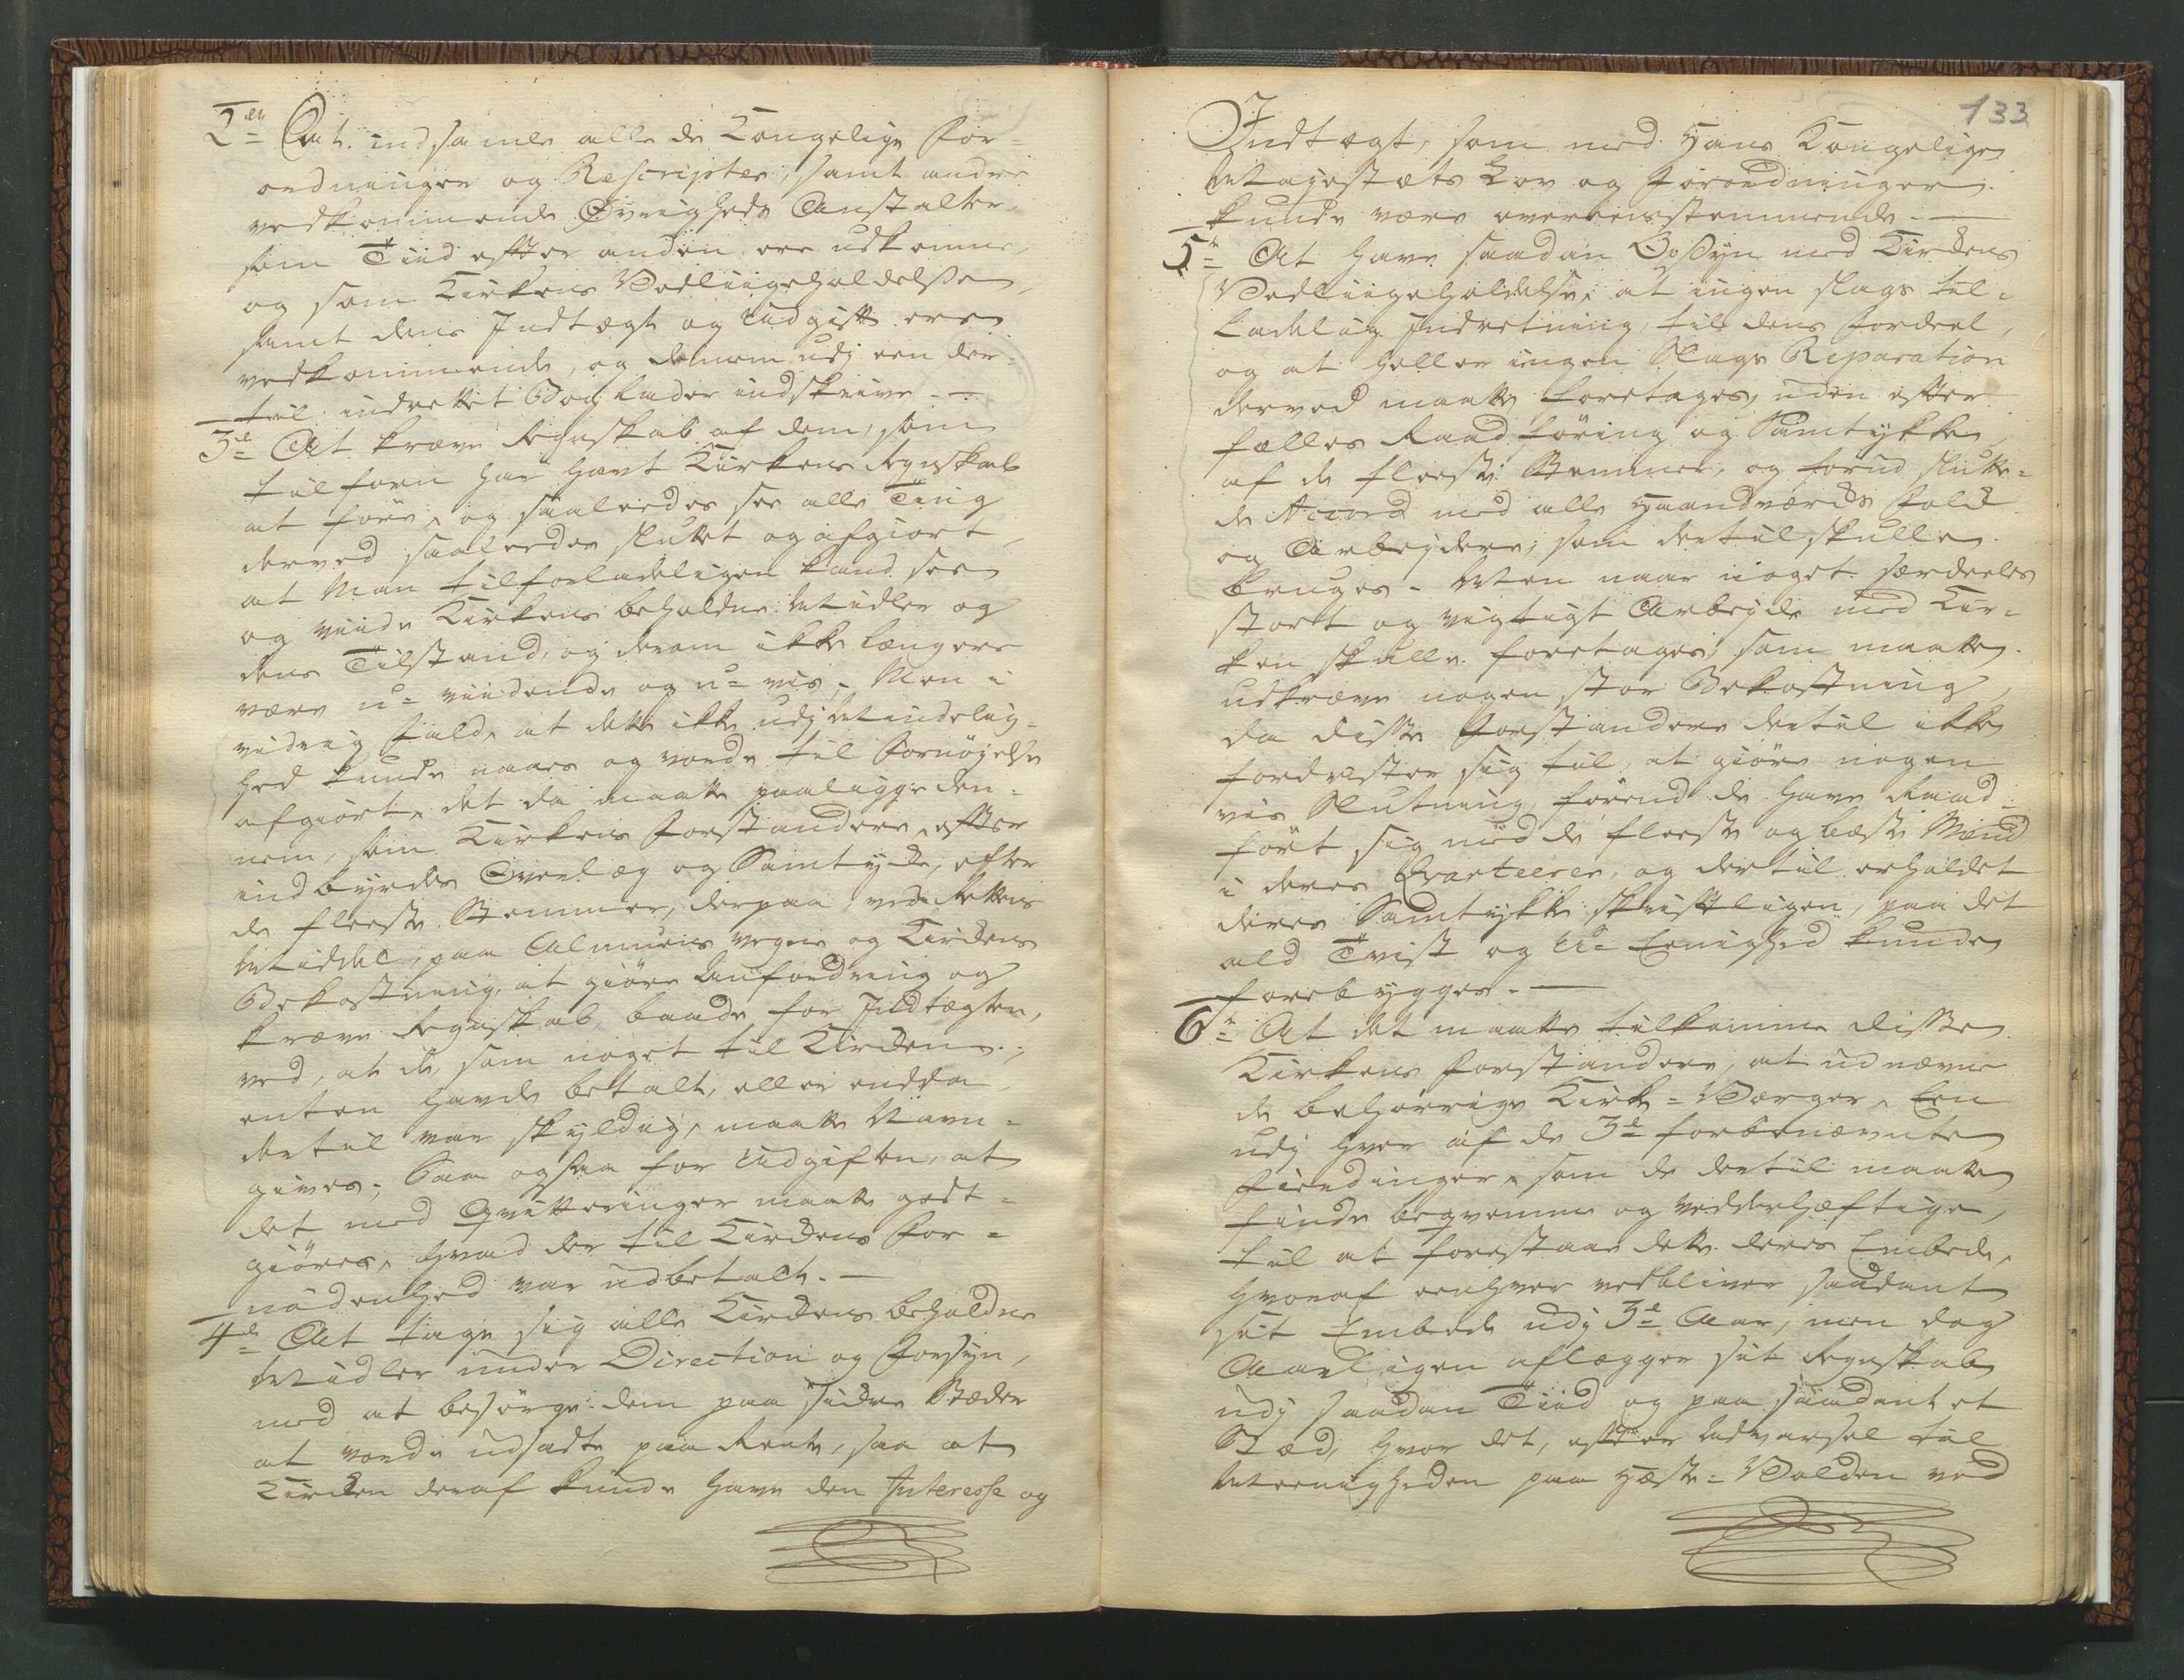 2den At indsamle alle de Kongelige For-
ordninger og Rescripter, samt andre
vedkommende Øvrigheds Anstalter
som Tiid efter anden ere udkomne,
og som Kirkens Vedliigeholdelse,
samt dens Indtægt og Udgift ere
vedkommende, og dennem udj een der-
til indrettet Bog lader indskrive. —
3de At kræve Regnskab af dem, som
tilforn har havt Kirkens Regnskab
at føre, og saaledes see alle Ting
derved saaledes sluttet og afgiort,
at Man tilforladeligen kand see
og viide Kirkens beholdne Midler og
dens Tilstand, og derom ikke længere
være u-viidende og u-vis. Men i
vidrig Fald, at dette ikke udj Mindelig-
hed kunde naaes og vorde til Fornøyelse
afgiort, det da maatte paaligge den-
nem, som Kirkens Forstandere, efter
indbyrdes Overlæg og Samtykke, efter
de fleeste Stemmer, derpaa ved Rettens
Middel, paa Almuens vegne og Kirkens
Bekostning, at giöre Anfordring og
kræve Regnskab, baade for Indtægten,
ved, at de, som noget til Kirken
enten havde betalt, eller endda
dertil var skyldig, maatte Navn-
gives; Saa ogsaa for Udgiften, at
det med Qvitteringer maatte godt-
giöres, hvad der til Kirkens For-
nödenhed var udbetalt. —
4de At tage sig alle Kirkens beholdne
Midler under Direction og Forsyn,
med at besörge dem paa sidre Stæder
at vorde udsadte paa Rente, saa at
Kirken deraf kunde have den Interesse og
133
Indtægt, som med Hans Kongelige
Mayestæts Lov og Forordninger
kunde være overeensstemmende. —
5te At have saadan Opsyn med Kirkens
Vedliigeholdelse, at ingen slags til-
ladelig Indretning, til dens Fordeel,
og at heller ingen Slags Reparation
derved maatte foretages, uden efter
fælles Raadføring og Samtykke,
af de fleeste Stemmer, og forud slutte-
de Accord med alle Haandværks Folk
og Arbeydere, som dertil skulle
bruges. Men naar noget særdeeles
stort og vigtigt Arbeyde med Kir-
ken skulle foretages, som maatte
udkræve nogen stor Bekostning,
da disse Forstandere dertil ikke
fordrister sig til, at giöre nogen
vis Slutning, förend de have Raad-
fört sig med de fleeste og bæste Mænd
i deres Qvarteerer, og dertil erholdet
deres Samtykke skriftligen, paa det
ald Tvist og U-Eenighed kunde
forebygges. —
6te At det maatte tilkomme disse
Kirkens Forstandere, at udnævne
de behörrige Kirke-Værger, Een
udj hver af de 3de forbenævnte
Fierdinger, som de dertil maatte
finde beqvemme og vederhæftige,
til at forestaae dette deres Embede,
hvoraf eenhver vedbliver saadant
sit Embede udj 3de Aar, men dog
Aarligen aflægger sit Regnskab
udj saadan Tiid og paa saadant et
Stæd, hvor det, efter Advarsel til
Meenigheden paa Hæste-Volden ved